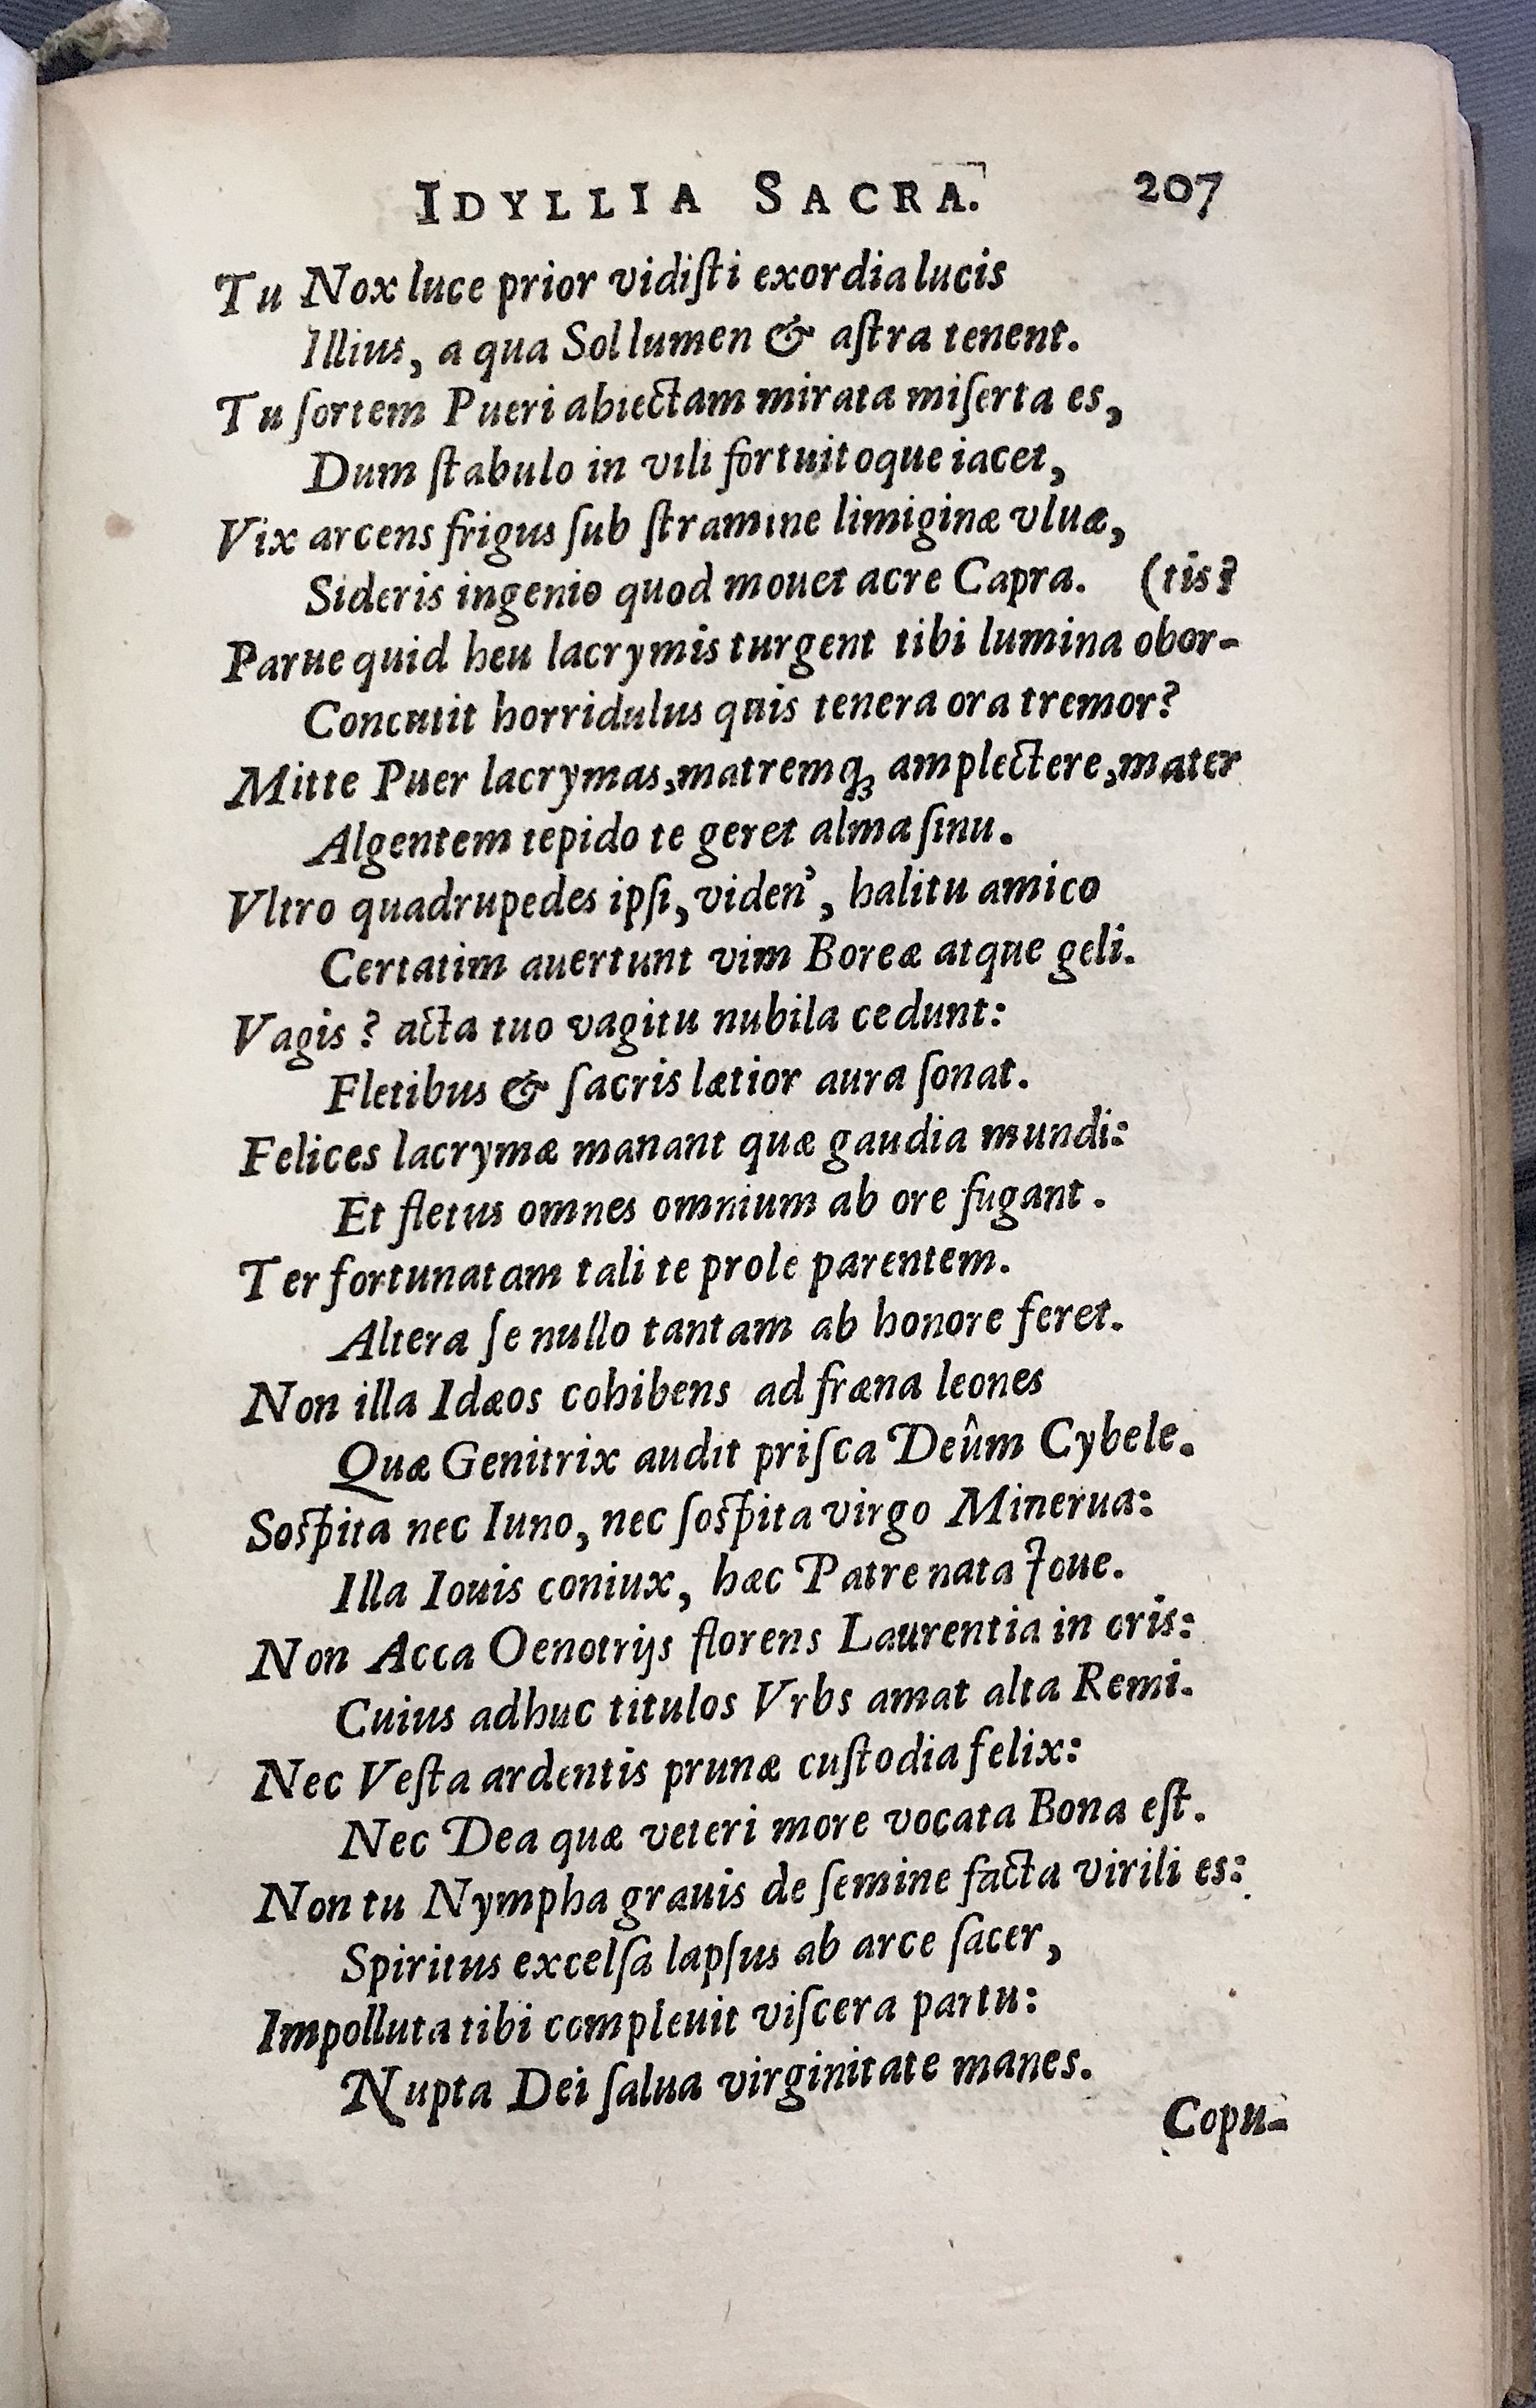 IDYLLIA SACRA. 207
Tu Nox luce prior vidiſti exordia lucis
Illius, a qua Sol lumen & aſtra tenent.
Tu ſortem Pueri abiectam mirata miſerta es,
Dum ſtabulo in vili fortuitoque iacet,
Vix arcens frigus ſub ſtramine limiginæ vluæ,
Sideris ingenio quod mouet acre Capra. (tis?
Parue quid heu lacrymis turgent tibi lumina obor-
Concutit horridulus quis tenera ora tremor?
Mitte Puer lacrymas, matremq; amplectere, mater
Algentem tepido te geret alma ſinu.
Vltro quadrupedes ipſi, viden', halitu amico
Certatim auertunt vim Boreæ atque geli.
Vagis? acta tuo vagitu nubila cedunt:
Fletibus & ſacris lætior aura ſonat.
Felices lacrymæ manant quæ gaudia mundi:
Et fletus omnes omnium ab ore fugant.
Ter fortunatam tali te prole parentem.
Altera ſe nullo tantam ab honore feret.
Non illa Idæos cohibens ad fræna leones
Quæ Genitrix audit priſca Deûm Cybele.
Soſpita nec Iuno, nec ſoſpita virgo Minerua:
Illa Iouis coniux, hæc Patre nata Ioue.
Non Acca Oenotrijs florens Laurentia in oris:
Cuius adhuc titulos Vrbs amat alta Remi.
Nec Veſta ardentis prunæ cuſtodia felix:
Nec Dea quæ veteri more vocata Bona eſt.
Non tu Nympha grauis de ſemine facta virili es:
Spiritus excelſa lapſus ab arce ſacer,
Impolluta tibi compleuit viſcera partu:
Nupta Dei ſalua virginitate manes.
Copu-